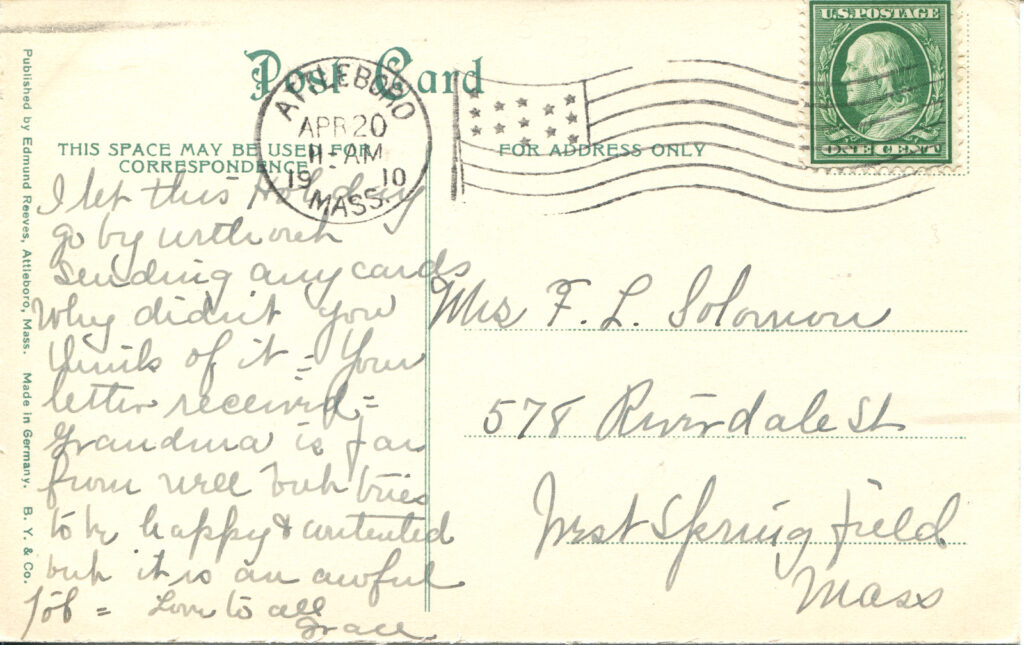 Post Card
U.S. POSTAGE
ONE CENT
ATTLEBORO
APR 20
11-AM
1910
MASS.
THIS SPACE MAY BE USED FOR
CORRESPONDENCE
FOR ADDRESS ONLY
I let this Holiday
go by without
sending any cards
Why didn't you
think of it = Your
letter received =
Grandma is far
from well but tries
to be happy & contented
but it is an awful
job = Love to all
Grace
Mrs F. L. Solomon
578 Riverdale St
West Springfield
Mass
Published by Edmund Reeves, Attleboro, Mass. Made in Germany. B. Y. & Co.